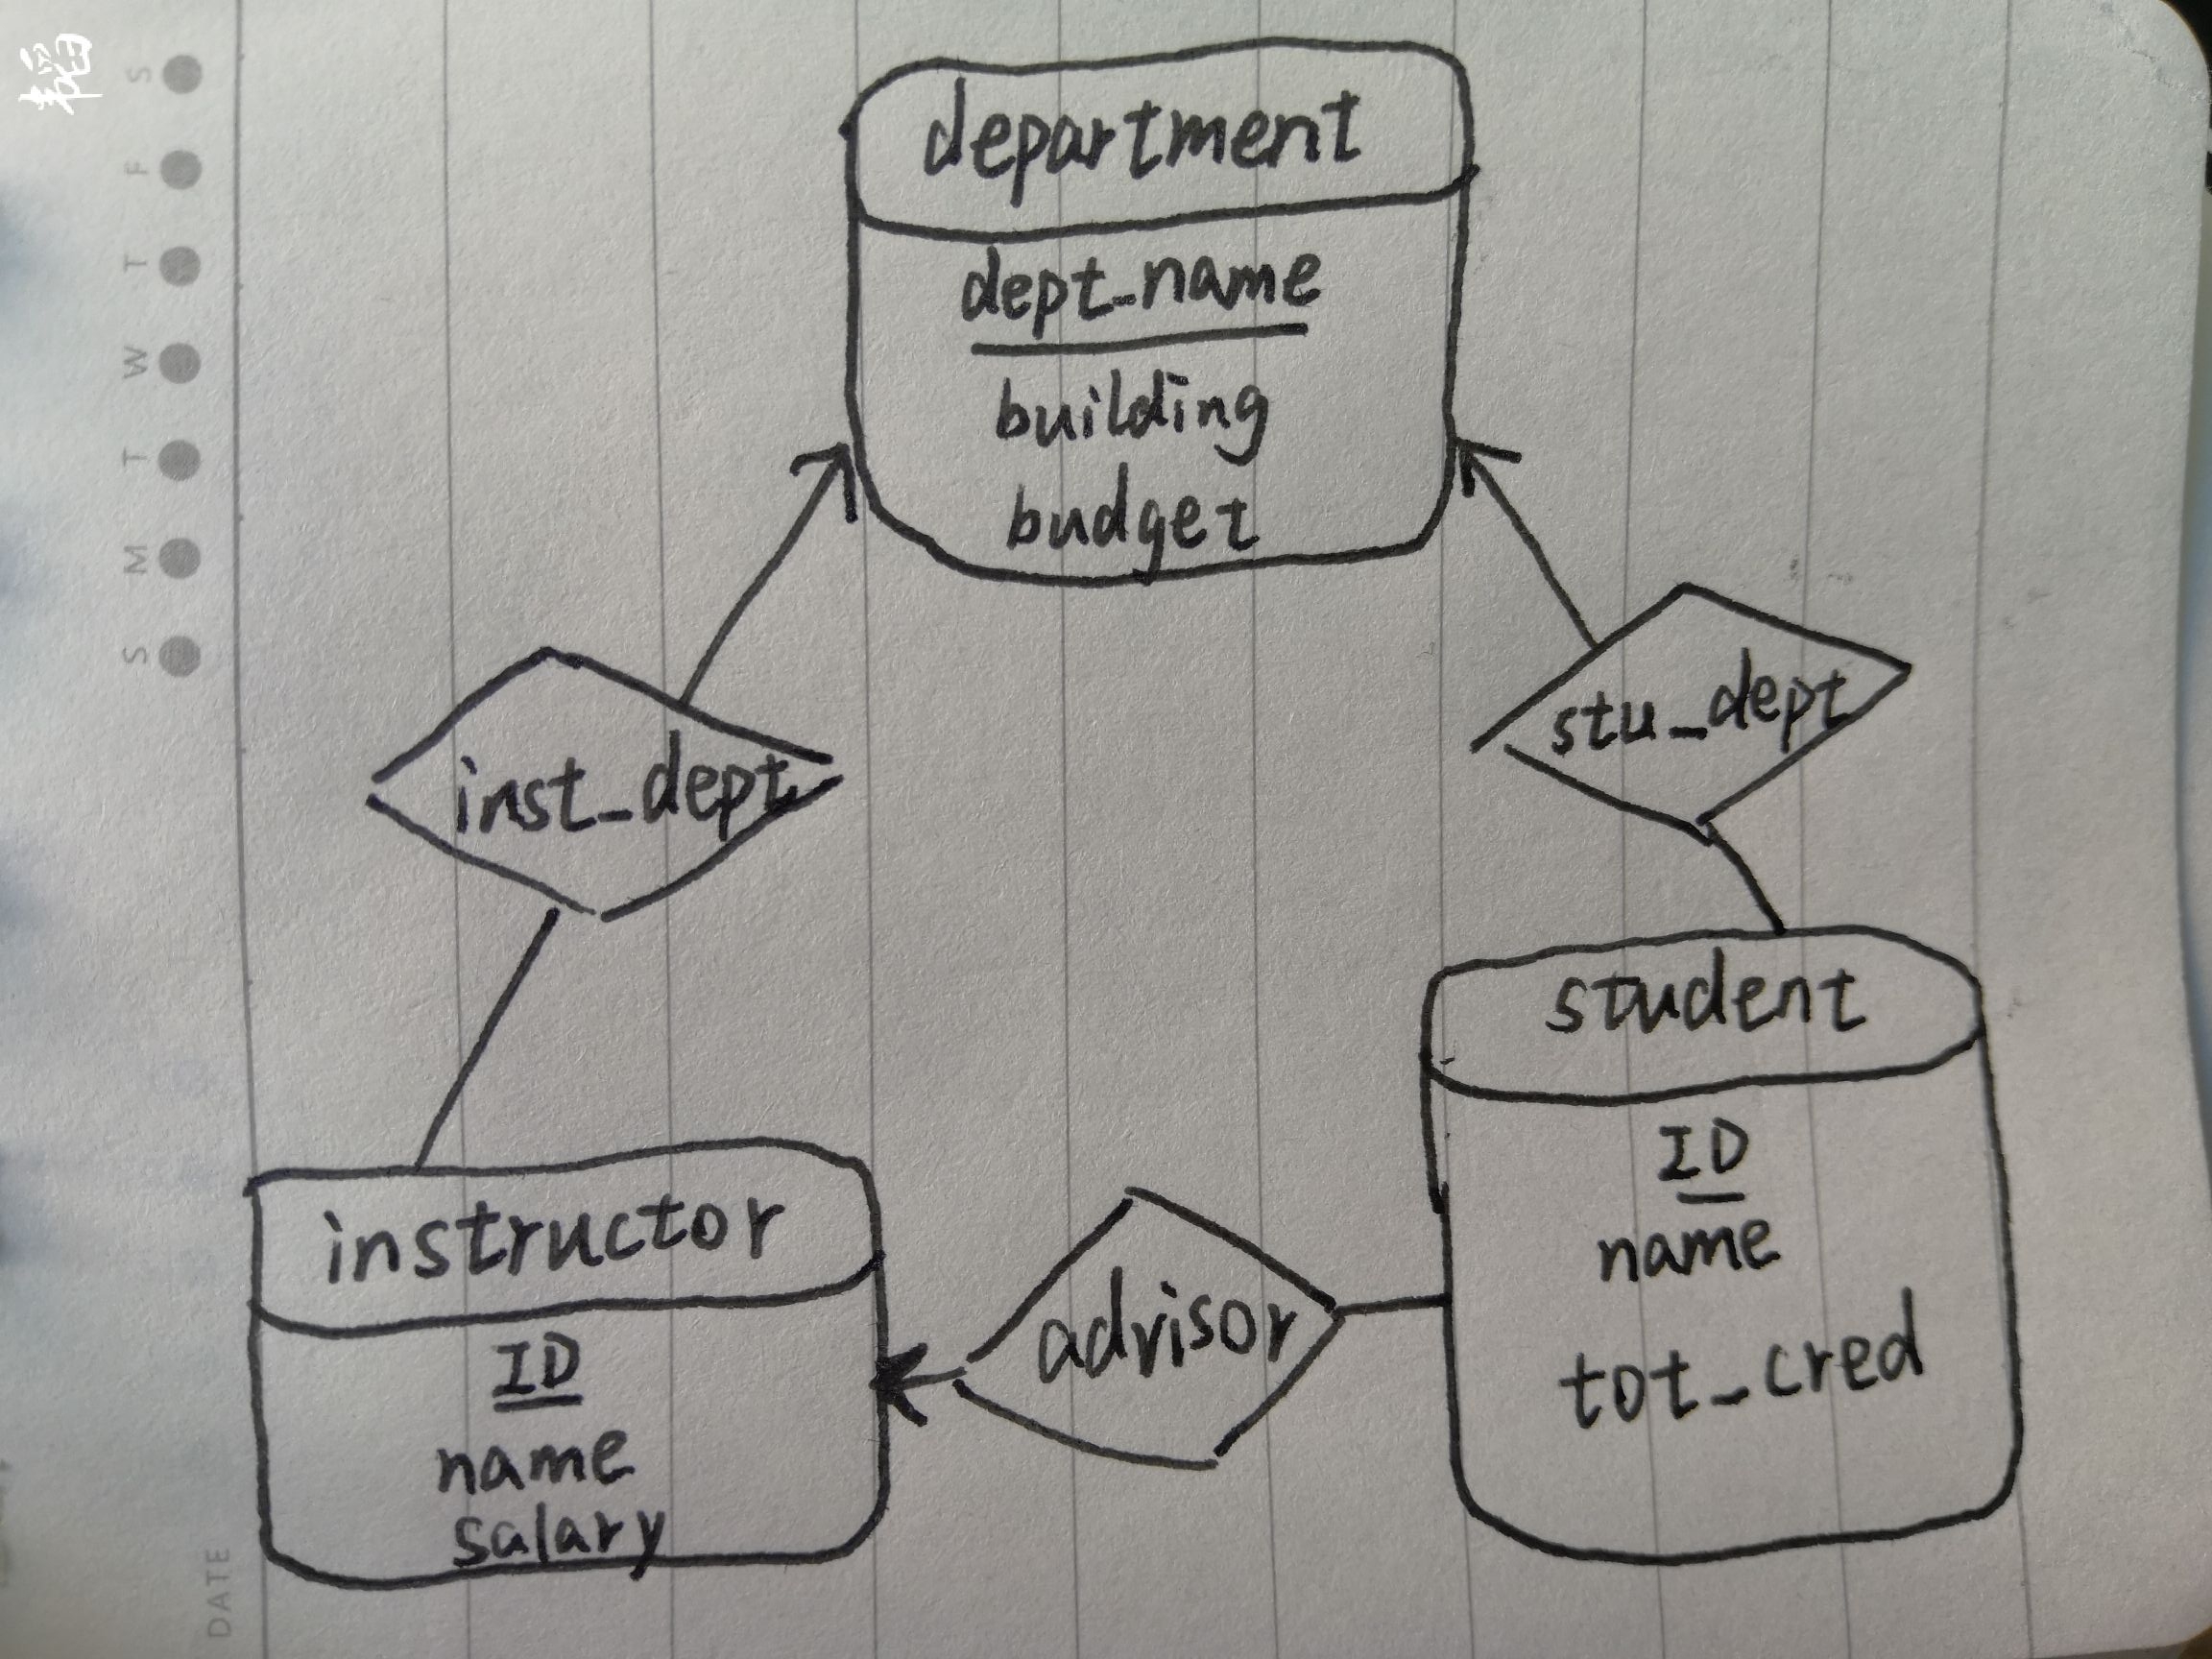 department
dept_name
building
budget
inst_dept
stu_dept
instructor
ID
name
salary
advisor
student
ID
name
tot_cred
S
M
T
W
T
F
S
DATE